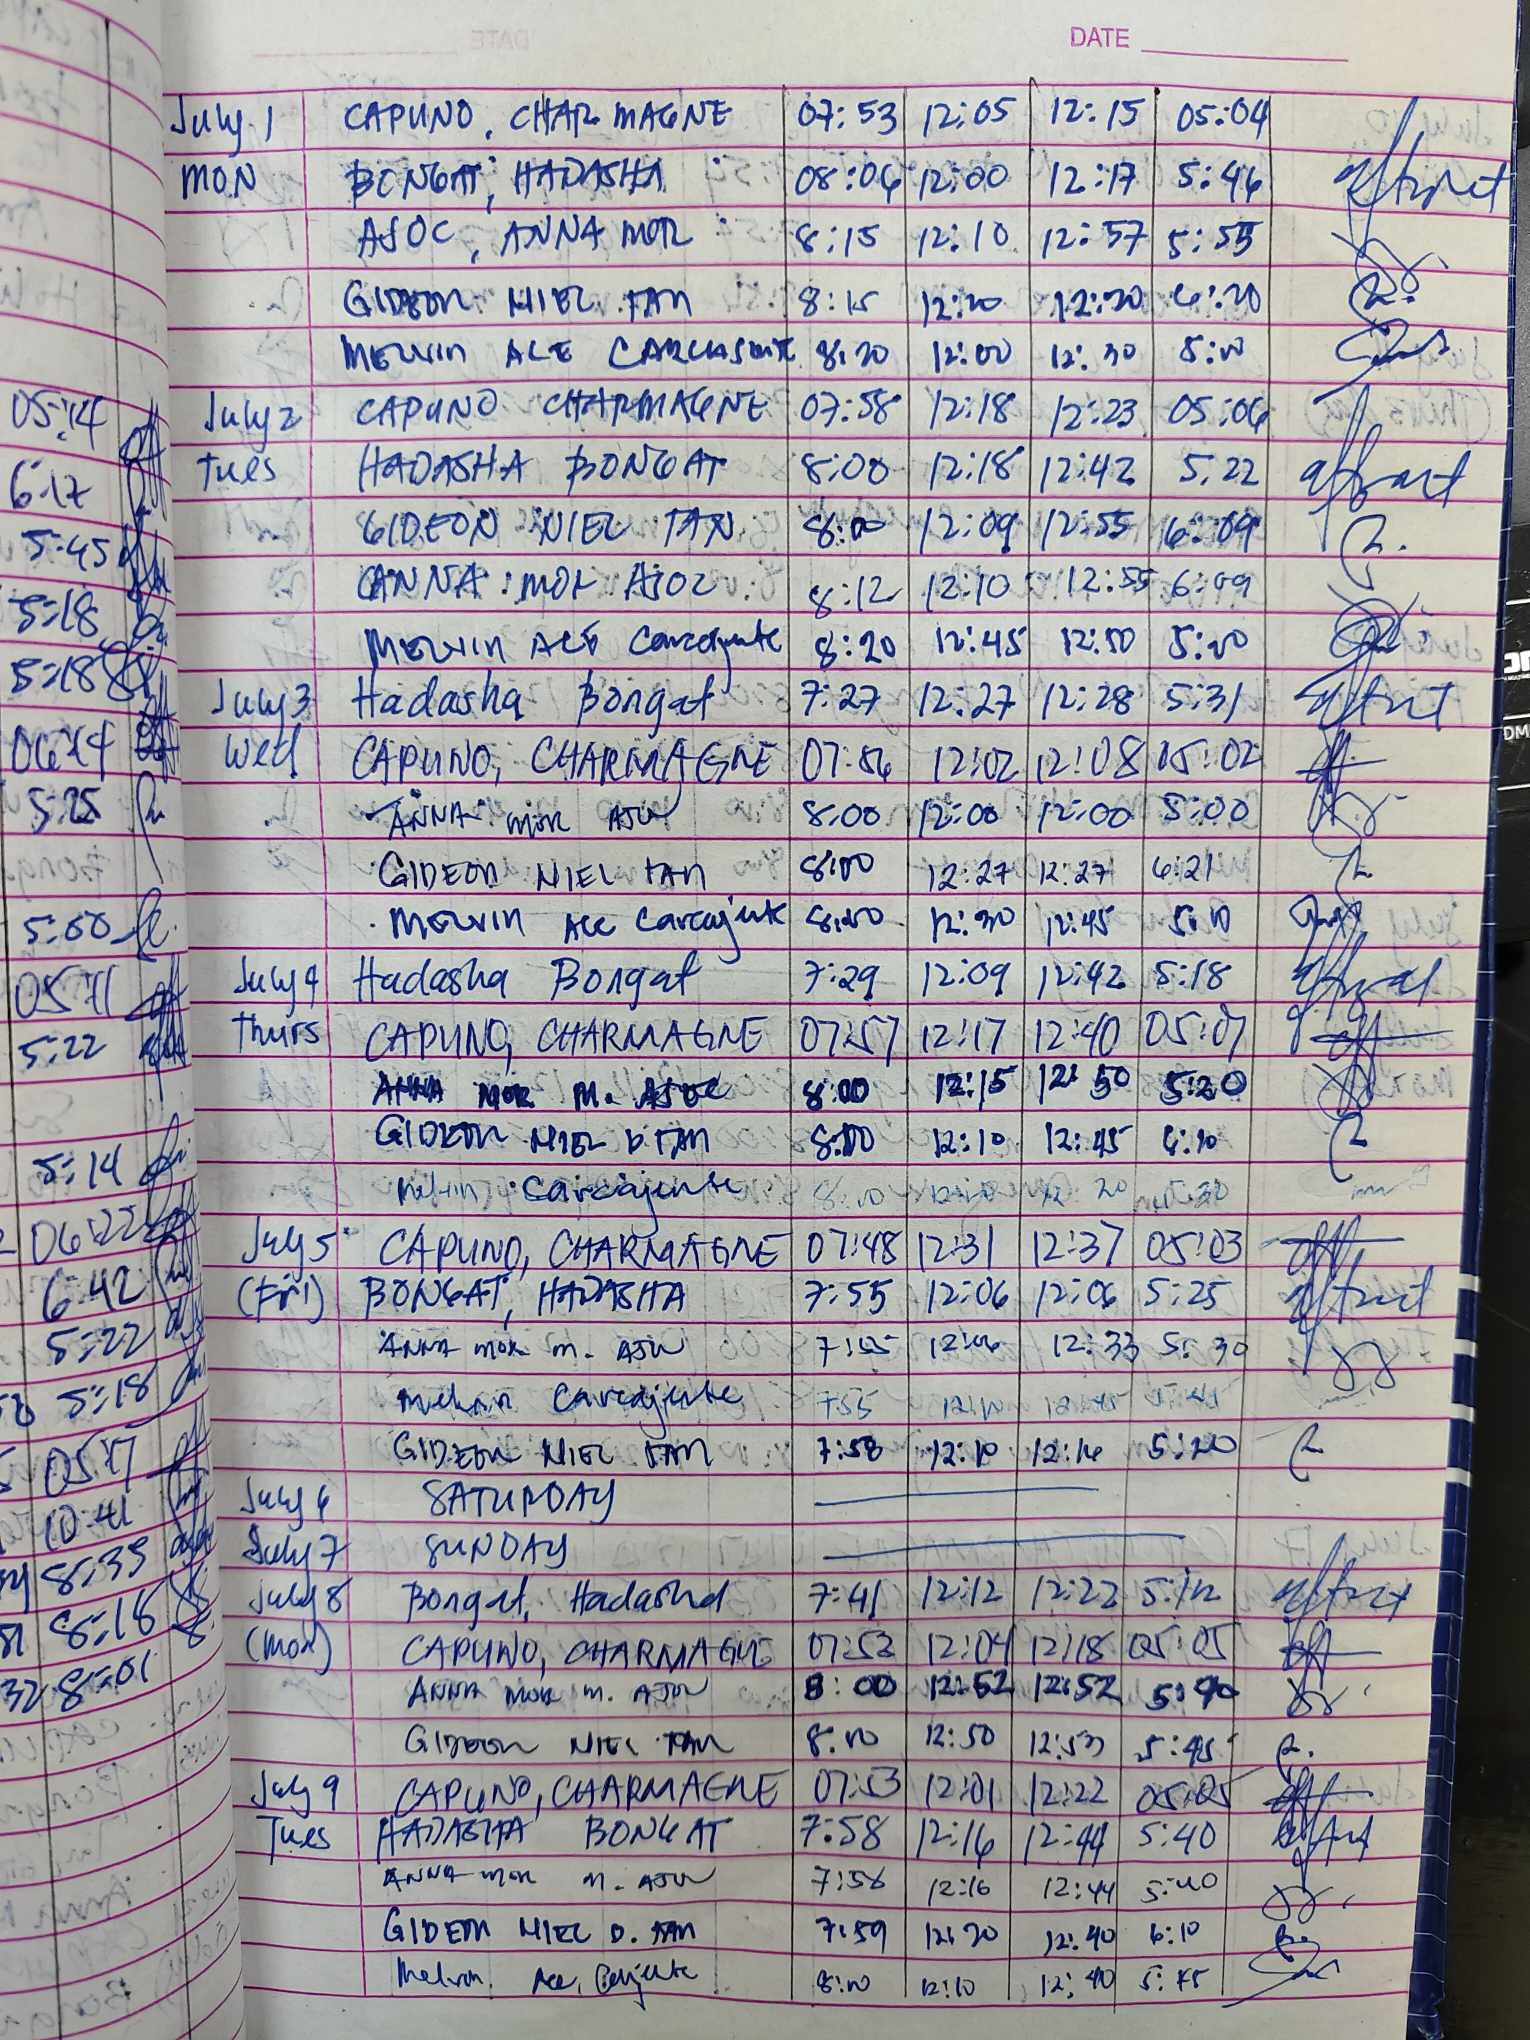 DATE
July 1 CAPUNO, CHARMAGNE 07:53 12:05 12:15 05:04
MON BONGAT, HADASHA 08:06 12:00 12:17 5:46
AJOC, ANNA MOR 8:15 12:10 12:57 5:55
GIDEON NIEL TAN 8:15 12:20 12:20 6:20
MELVIN ACE 8:20 12:00 12:30 5:00
July 2 CAPUNO CHARMAGNE 07:58 12:18 12:23 05:06
Tues HADASHA BONGAT 8:00 12:18 12:42 5:22
GIDEON NIEL TAN 8:00 12:09 12:55 6:09
ANNA MOR AJOC 8:12 12:10 12:55 6:09
MELVIN ACE Carcajente 8:20 12:45 12:50 5:00
July 3 Hadasha Bongat 7:27 12:27 12:28 5:31
Wed CAPUNO, CHARMAGNE 07:56 12:02 12:08 05:02
ANNA MOR AJOC 8:00 12:00 12:00 5:00
GIDEON NIEL TAN 8:00 12:27 12:27 6:21
MELVIN Ace Carcajente 8:00 12:30 12:45 5:10
July 4 Hadasha Bongat 7:29 12:09 12:42 5:18
Thurs CAPUNO, CHARMAGNE 07:57 12:17 12:40 05:07
ANNA MOR M. AJOC 8:00 12:15 12:50 5:20
GIDEON NIEL D. TAN 8:00 12:10 12:45 6:10
Melvin Carcajente
July 5 CAPUNO, CHARMAGNE 07:48 12:31 12:37 05:03
(Fri) BONGAT, HADASHA 7:55 12:06 12:06 5:25
ANNA MOR M. AJOC 7:55 12:06 12:33 5:30
Melvin Carcajente 7:55 12:10 12:45
GIDEON NIEL TAN 7:58 12:10 12:16 5:20
July 6 SATURDAY
July 7 SUNDAY
July 8 Bongat, Hadasha 7:41 12:12 12:22 5:12
(Mon) CAPUNO, CHARMAGNE 07:53 12:04 12:18 05:05
ANNA MOR M. AJOC 8:00 12:52 12:52 5:40
GIDEON NIEL TAN 8:00 12:50 12:53 5:45
July 9 CAPUNO, CHARMAGNE 07:53 12:01 12:22 05:05
Tues HADASHA BONGAT 7:58 12:16 12:44 5:40
ANNA MOR M. AJOC 7:58 12:16 12:44 5:40
GIDEON NIEL D. TAN 7:59 12:20 12:40 6:10
Melvin Ace 8:00 12:10 12:40
05:14
6:17
5:45
5:18
5:18
5:25
5:00
5:22
5:14
06:22
6:42
5:22
5:18
05:17
10:41
8:39
8:18
8:01